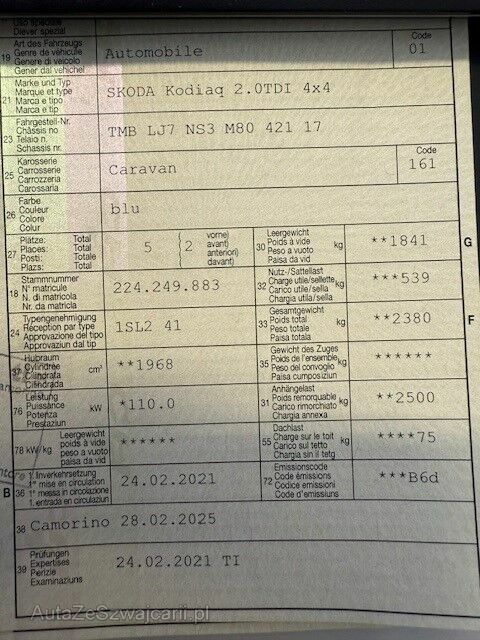 Uso speciale
Diever spezial
19 Art des Fahrzeugs
Genre de véhicule
Genere di veicolo
Gener dal vehichel
Automobile
Code
01
21 Marke und Typ
Marque et type
Marca e tipo
Marca e tip
SKODA Kodiaq 2.0TDI 4x4
23 Fahrgestell-Nr.
Châssis no
Telaio n.
Schassis nr.
TMB LJ7 NS3 M80 421 17
25 Karosserie
Carrosserie
Carrozzeria
Carossaria
Caravan
Code
161
26 Farbe
Couleur
Colore
Colur
blu
27 Plätze: Total
Places: Total
Posti: Totale
Plazs: Total
5 { 2 vorne)
avant)
anteriori)
davant)
30 Leergewicht
Poids à vide
Peso a vuoto
Paisa da vid
kg
**1841
G
18 Stammnummer
N° matricule
N. di matricola
Nr. da matricla
224.249.883
32 Nutz-/Sattellast
Charge utile/sellette
Carico utile/sella
Chargia utila/sella
kg
***539
24 Typengenehmigung
Réception par type
Approvazione del tipo
Approvaziun dal tip
1SL2 41
33 Gesamtgewicht
Poids total
Peso totale
Paisa totala
kg
**2380
F
37 Hubraum
Cylindrée
Cilindrata
Cilindrada
cm³
**1968
35 Gewicht des Zuges
Poids de l'ensemble
Peso del convoglio
Paisa cumposiziun
kg
******
76 Leistung
Puissance
Potenza
Prestaziun
kW
*110.0
31 Anhängelast
Poids remorquable
Carico rimorchiato
Chargia annexa
kg
**2500
78 kW/kg
Leergewicht
poids à vide
peso a vuoto
paisa da vid
******
55 Dachlast
Charge sur le toit
Carico sul tetto
Chargia sin il tetg
kg
****75
B
36 1. Inverkehrsetzung
1re mise en circulation
1a messa in circolazione
1. entrada en circulaziun
24.02.2021
72 Emissionscode
Code émissions
Codice emissioni
Code d'emissiuns
***B6d
38 Camorino 28.02.2025
39 Prüfungen
Expertises
Perizie
Examinaziuns
24.02.2021 TI
AutaZeSzwajcarii.pl